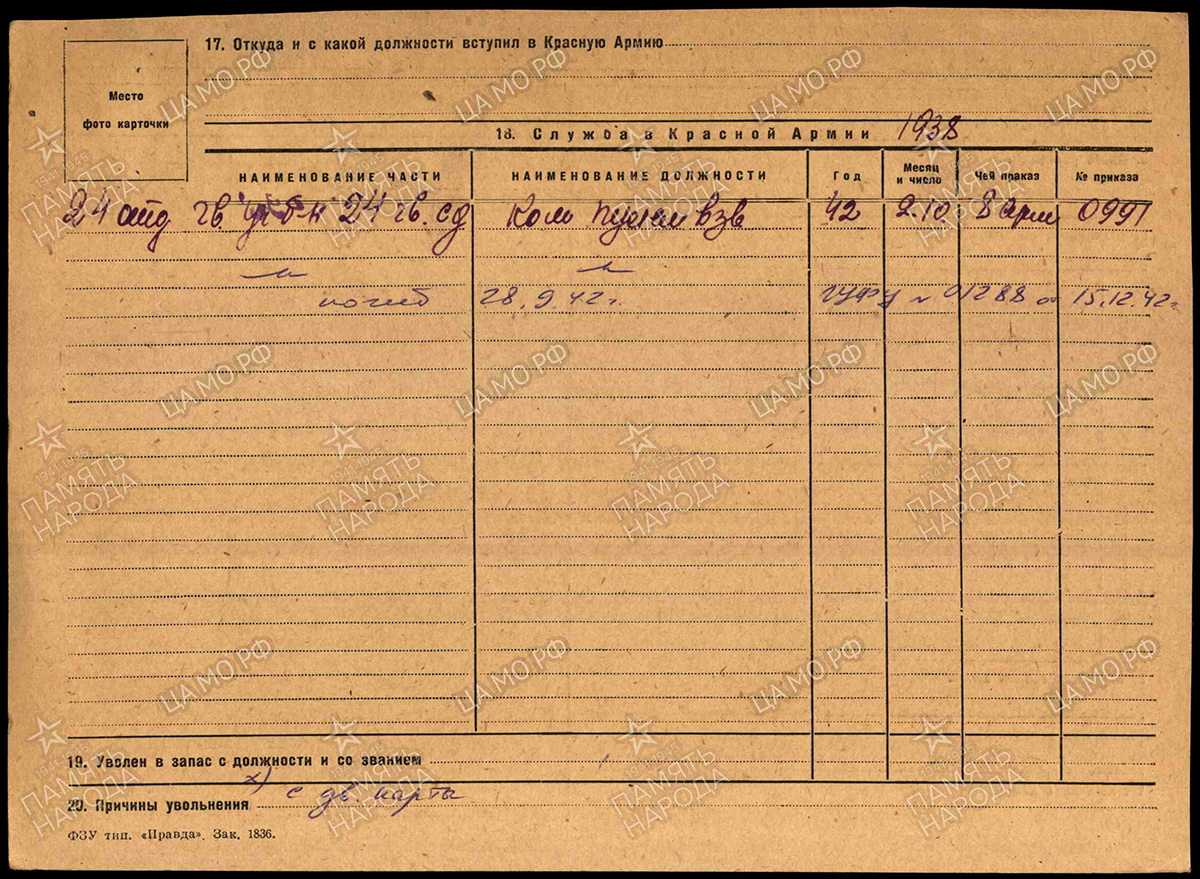 17. Откуда и с какой должности вступил в Красную Армию
Место
фото карточки
18. Служба в Красной Армии 1938
НАИМЕНОВАНИЕ ЧАСТИ НАИМЕНОВАНИЕ ДОЛЖНОСТИ Год Месяц и число Чей приказ № приказа
24 гв. 24 гв. сд Ком пулем взв 42 2.10. 8 арм 0991
погиб 28.9.42 г. ГУФУ 01288 от 15.12.42 г
19. Уволен в запас с должности и со званием
х) с дв. карты
20. Причины увольнения
ФЗУ тип. «Правда». Зак. 1836.
ЦАМО.РФ
1941-1945
ПАМЯТЬ
НАРОДА